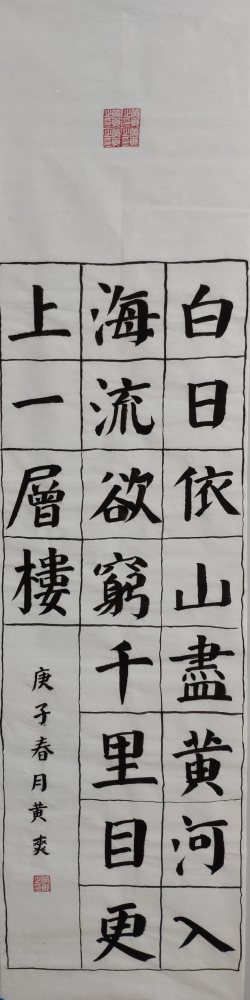 白日依山盡黄河入
海流欲窮千里目更
上一層樓
庚子春月黄爽